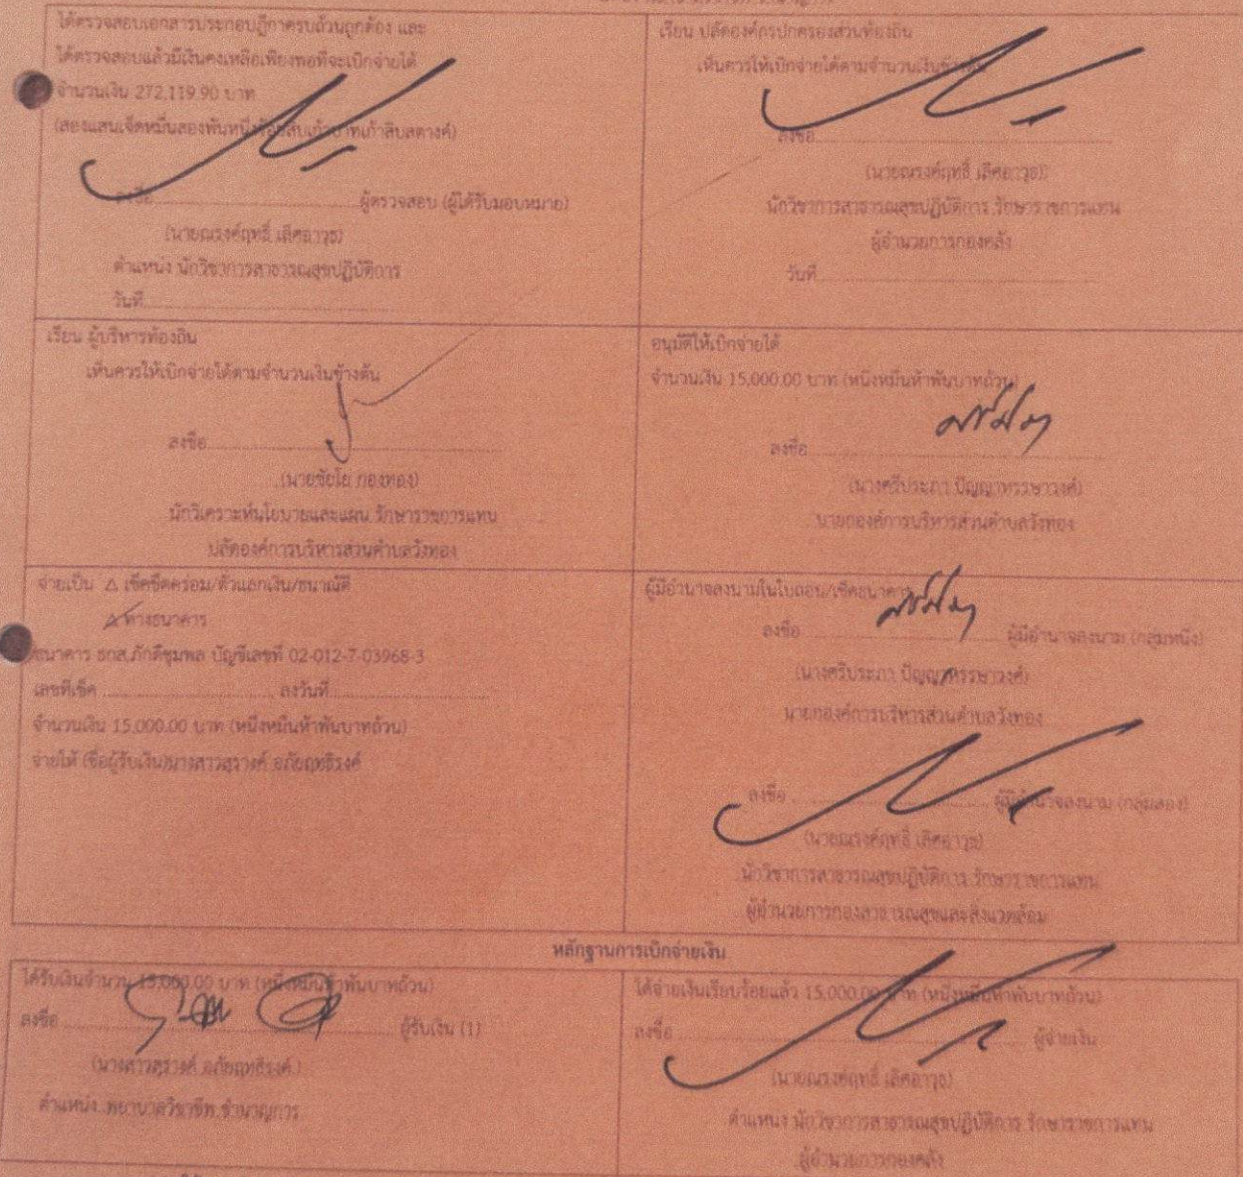 ได้ตรวจสอบเอกสารประกอบฎีกาครบถ้วนถูกต้อง และ
ได้ตรวจสอบแล้วมีเงินคงเหลือเพียงพอที่จะเบิกจ่ายได้
จำนวนเงิน 272,119.90 บาท
(สองแสนเจ็ดหมื่นสองพันหนึ่งร้อยสิบเก้าบาทเก้าสิบสตางค์)
ลงชื่อ ผู้ตรวจสอบ (ผู้ได้รับมอบหมาย)
(นายณรงค์ฤทธิ์ เลิศอาวุธ)
ตำแหน่ง นักวิชาการสาธารณสุขปฏิบัติการ
วันที่
เรียน ปลัดองค์กรปกครองส่วนท้องถิ่น
เห็นควรให้เบิกจ่ายได้ตามจำนวนเงินข้างต้น
ลงชื่อ
(นายณรงค์ฤทธิ์ เลิศอาวุธ)
นักวิชาการสาธารณสุขปฏิบัติการ รักษาราชการแทน
ผู้อำนวยการกองคลัง
วันที่
เรียน ผู้บริหารท้องถิ่น
เห็นควรให้เบิกจ่ายได้ตามจำนวนเงินข้างต้น
ลงชื่อ
(นายชัยโย กองทอง)
นักวิเคราะห์นโยบายและแผน รักษาราชการแทน
ปลัดองค์การบริหารส่วนตำบลวังทอง
อนุมัติให้เบิกจ่ายได้
จำนวนเงิน 15,000.00 บาท (หนึ่งหมื่นห้าพันบาทถ้วน)
ลงชื่อ
(นางศรีประภา ปัญญาพรรษาวงศ์)
นายกองค์การบริหารส่วนตำบลวังทอง
จ่ายเป็น △ เช็คขีดคร่อม/ตั๋วแลกเงิน/ธนาณัติ
△ ทางธนาคาร
ธนาคาร ธกส.ภักดีชุมพล บัญชีเลขที่ 02-012-7-03968-3
เลขที่เช็ค ลงวันที่
จำนวนเงิน 15,000.00 บาท (หนึ่งหมื่นห้าพันบาทถ้วน)
จ่ายให้ (ชื่อผู้รับเงิน)นางสาวสุรางค์ อภัยฤทธิรงค์
ผู้มีอำนาจลงนามในใบถอน/เช็คธนาคาร
ลงชื่อ ผู้มีอำนาจลงนาม (กลุ่มหนึ่ง)
(นางศรีประภา ปัญญาพรรษาวงศ์)
นายกองค์การบริหารส่วนตำบลวังทอง
ลงชื่อ ผู้มีอำนาจลงนาม (กลุ่มสอง)
(นายณรงค์ฤทธิ์ เลิศอาวุธ)
นักวิชาการสาธารณสุขปฏิบัติการ รักษาราชการแทน
ผู้อำนวยการกองสาธารณสุขและสิ่งแวดล้อม
หลักฐานการเบิกจ่ายเงิน
ได้รับเงินจำนวน 15,000.00 บาท (หนึ่งหมื่นห้าพันบาทถ้วน)
ลงชื่อ ผู้รับเงิน (1)
(นางสาวสุรางค์ อภัยฤทธิรงค์ )
ตำแหน่ง พยาบาลวิชาชีพ ชำนาญการ
ได้จ่ายเงินเรียบร้อยแล้ว 15,000.00 บาท (หนึ่งหมื่นห้าพันบาทถ้วน)
ลงชื่อ ผู้จ่ายเงิน
(นายณรงค์ฤทธิ์ เลิศอาวุธ)
ตำแหน่ง นักวิชาการสาธารณสุขปฏิบัติการ รักษาราชการแทน
ผู้อำนวยการกองคลัง